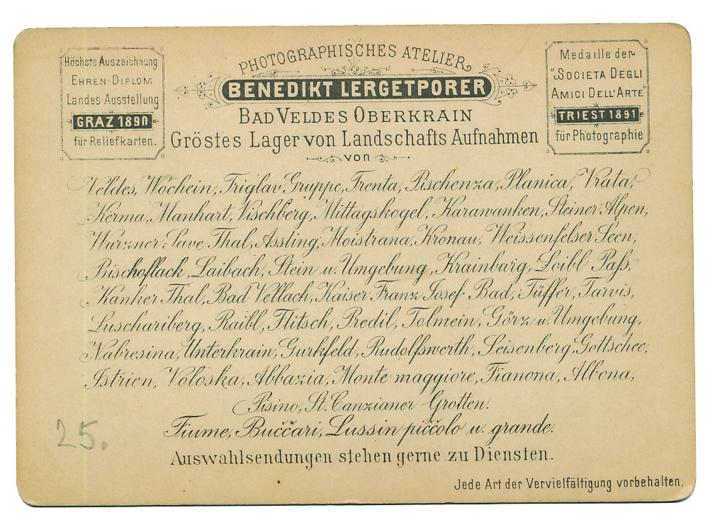 Höchste Auszeichnung
Ehren-Diplom
Landes Ausstellung
GRAZ 1890
für Reliefkarten.
PHOTOGRAPHISCHES ATELIER
BENEDIKT LERGETPORER
BAD VELDES OBERKRAIN
Gröstes Lager von Landschafts Aufnahmen
von
Medaille der
"Societa Degli
Amici Dell'Arte"
TRIEST 1891
für Photographie
Veldes, Wochein, Triglav Gruppe, Trenta, Pischenza, Planica, Vrata,
Kerma, Manhart, Vischberg, Mittagskogel, Karawanken, Steiner Alpen,
Wurzner-Save Thal, Assling, Moistrana, Kronau, Weissenfelser Seen,
Bischoflack, Laibach, Stein u. Umgebung, Krainburg, Loibl Paß,
Kanker Thal, Bad Vellach, Kaiser Franz Josef Bad, Tüffer, Tarvis,
Luschariberg, Raibl, Flitsch, Predil, Tolmein, Görz u. Umgebung,
Nabresina, Unterkrain, Gurkfeld, Rudolfswerth, Seisenberg, Gottschee,
Istrien, Voloska, Abbazia, Monte maggiore, Fianona, Albona,
Pisino, St. Canzianer Grotten.
Fiume, Buččari, Lussin pičcolo u. grande.
25.
Auswahlsendungen stehen gerne zu Diensten.
Jede Art der Vervielfältigung vorbehalten.